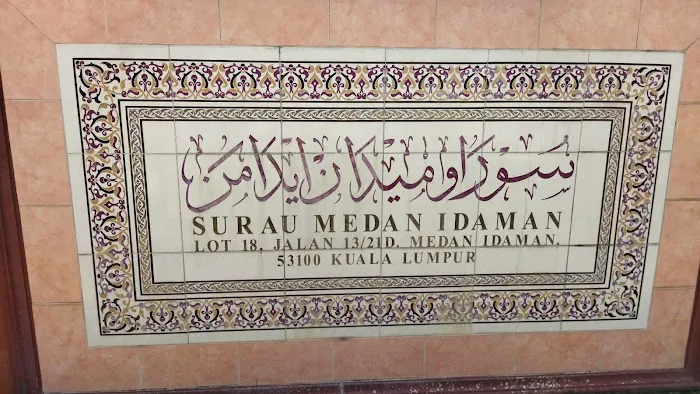 سوراو ميدان ايدامن
SURAU MEDAN IDAMAN
LOT 18, JALAN 13/21D. MEDAN IDAMAN,
53100 KUALA LUMPUR